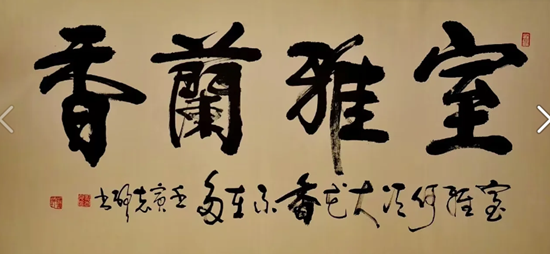 室雅蘭香
室雅何须大花香不在多 壬寅志书